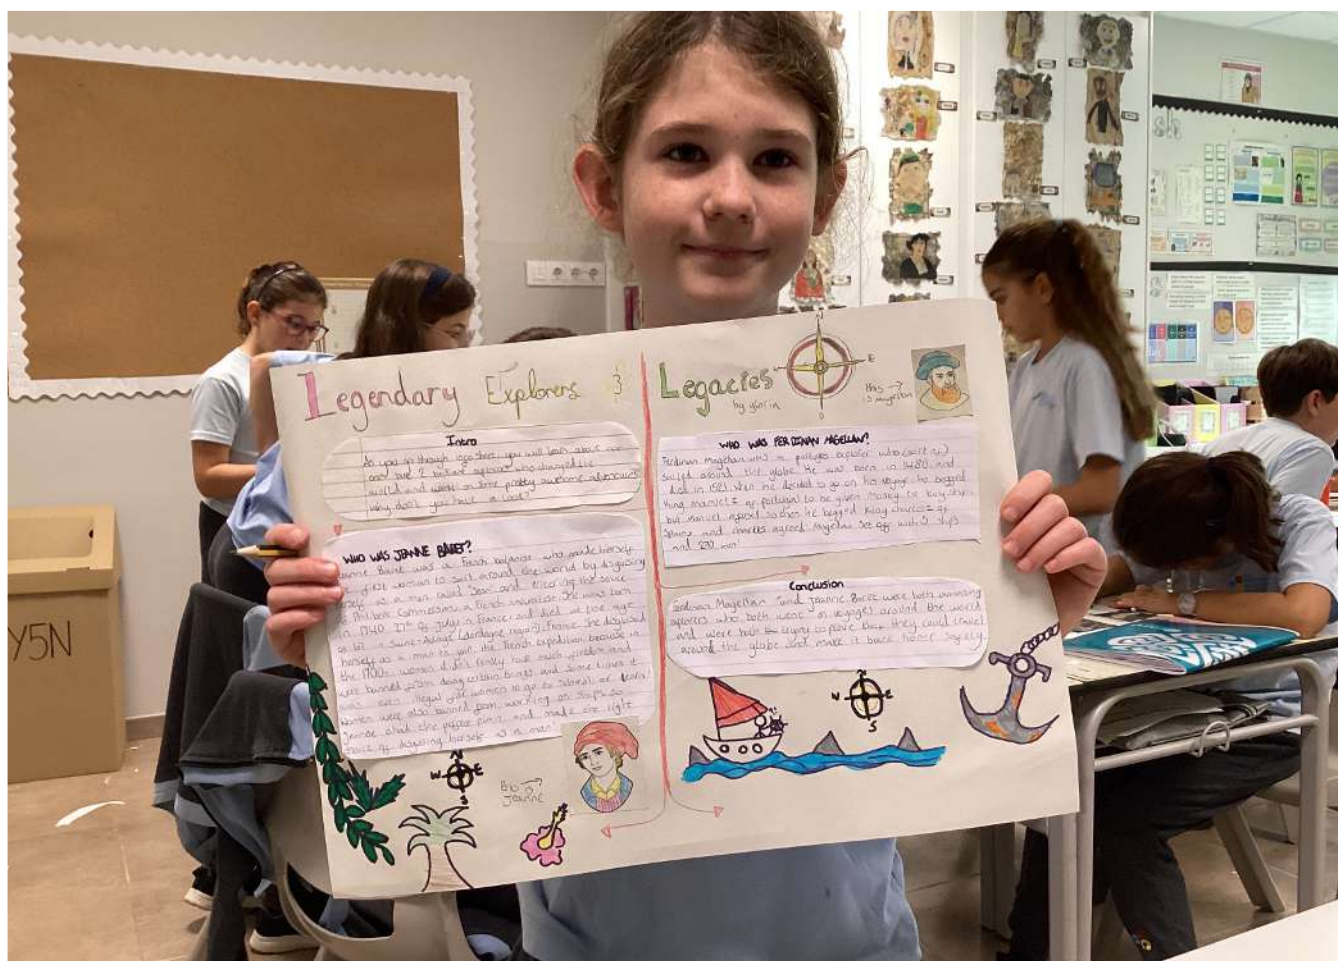 Legendary Explorers &
Legacies
by gloria
N
E
S
this →
is magellan
Intro
As you go through
world and some pretty awesome adventures
Why don't you have a look?
WHO WAS JEANNE BARET?
Jeanne Baret was a French botanist who made herself
1st woman to sail around the world by disguising
herself as a man called "Jean" and the
Philibert Commerson, a French naturalist. She was born
in 1740 27th of July in France, and died at the age
of in Saint-Aulaye (Dordogne region), France. She disguised
herself as a man to join the French expedition because in
the 1700s women didn't really have much freedom and
were banned from doing certain things and some times it
was even illegal for women to go to school or learn!
Women were also banned from working on ships so
Jeanne and made the right
choice of disguising herself as a man
W
E
S
this →
is
Jeanne
WHO WAS FERDINAN MAGELLAN?
Ferdinan Magellan was a explorer who
sailed around the globe. He was born in 1480 and
died in 1521. When he decided to go on his voyage he begged
King Manuel I of Portugal to be given money to buy ships
but Manuel refused so then he begged King Charles of
Spain and Charles agreed Magellan set off with 5 ships
and 270 men!
Conclusion
Ferdinan Magellan and Jeanne Baret were both amazing
explorers who both went on voyages around the world
and were both trying to prove that they could travel
around the globe and make it back home safely.
S
Y5N